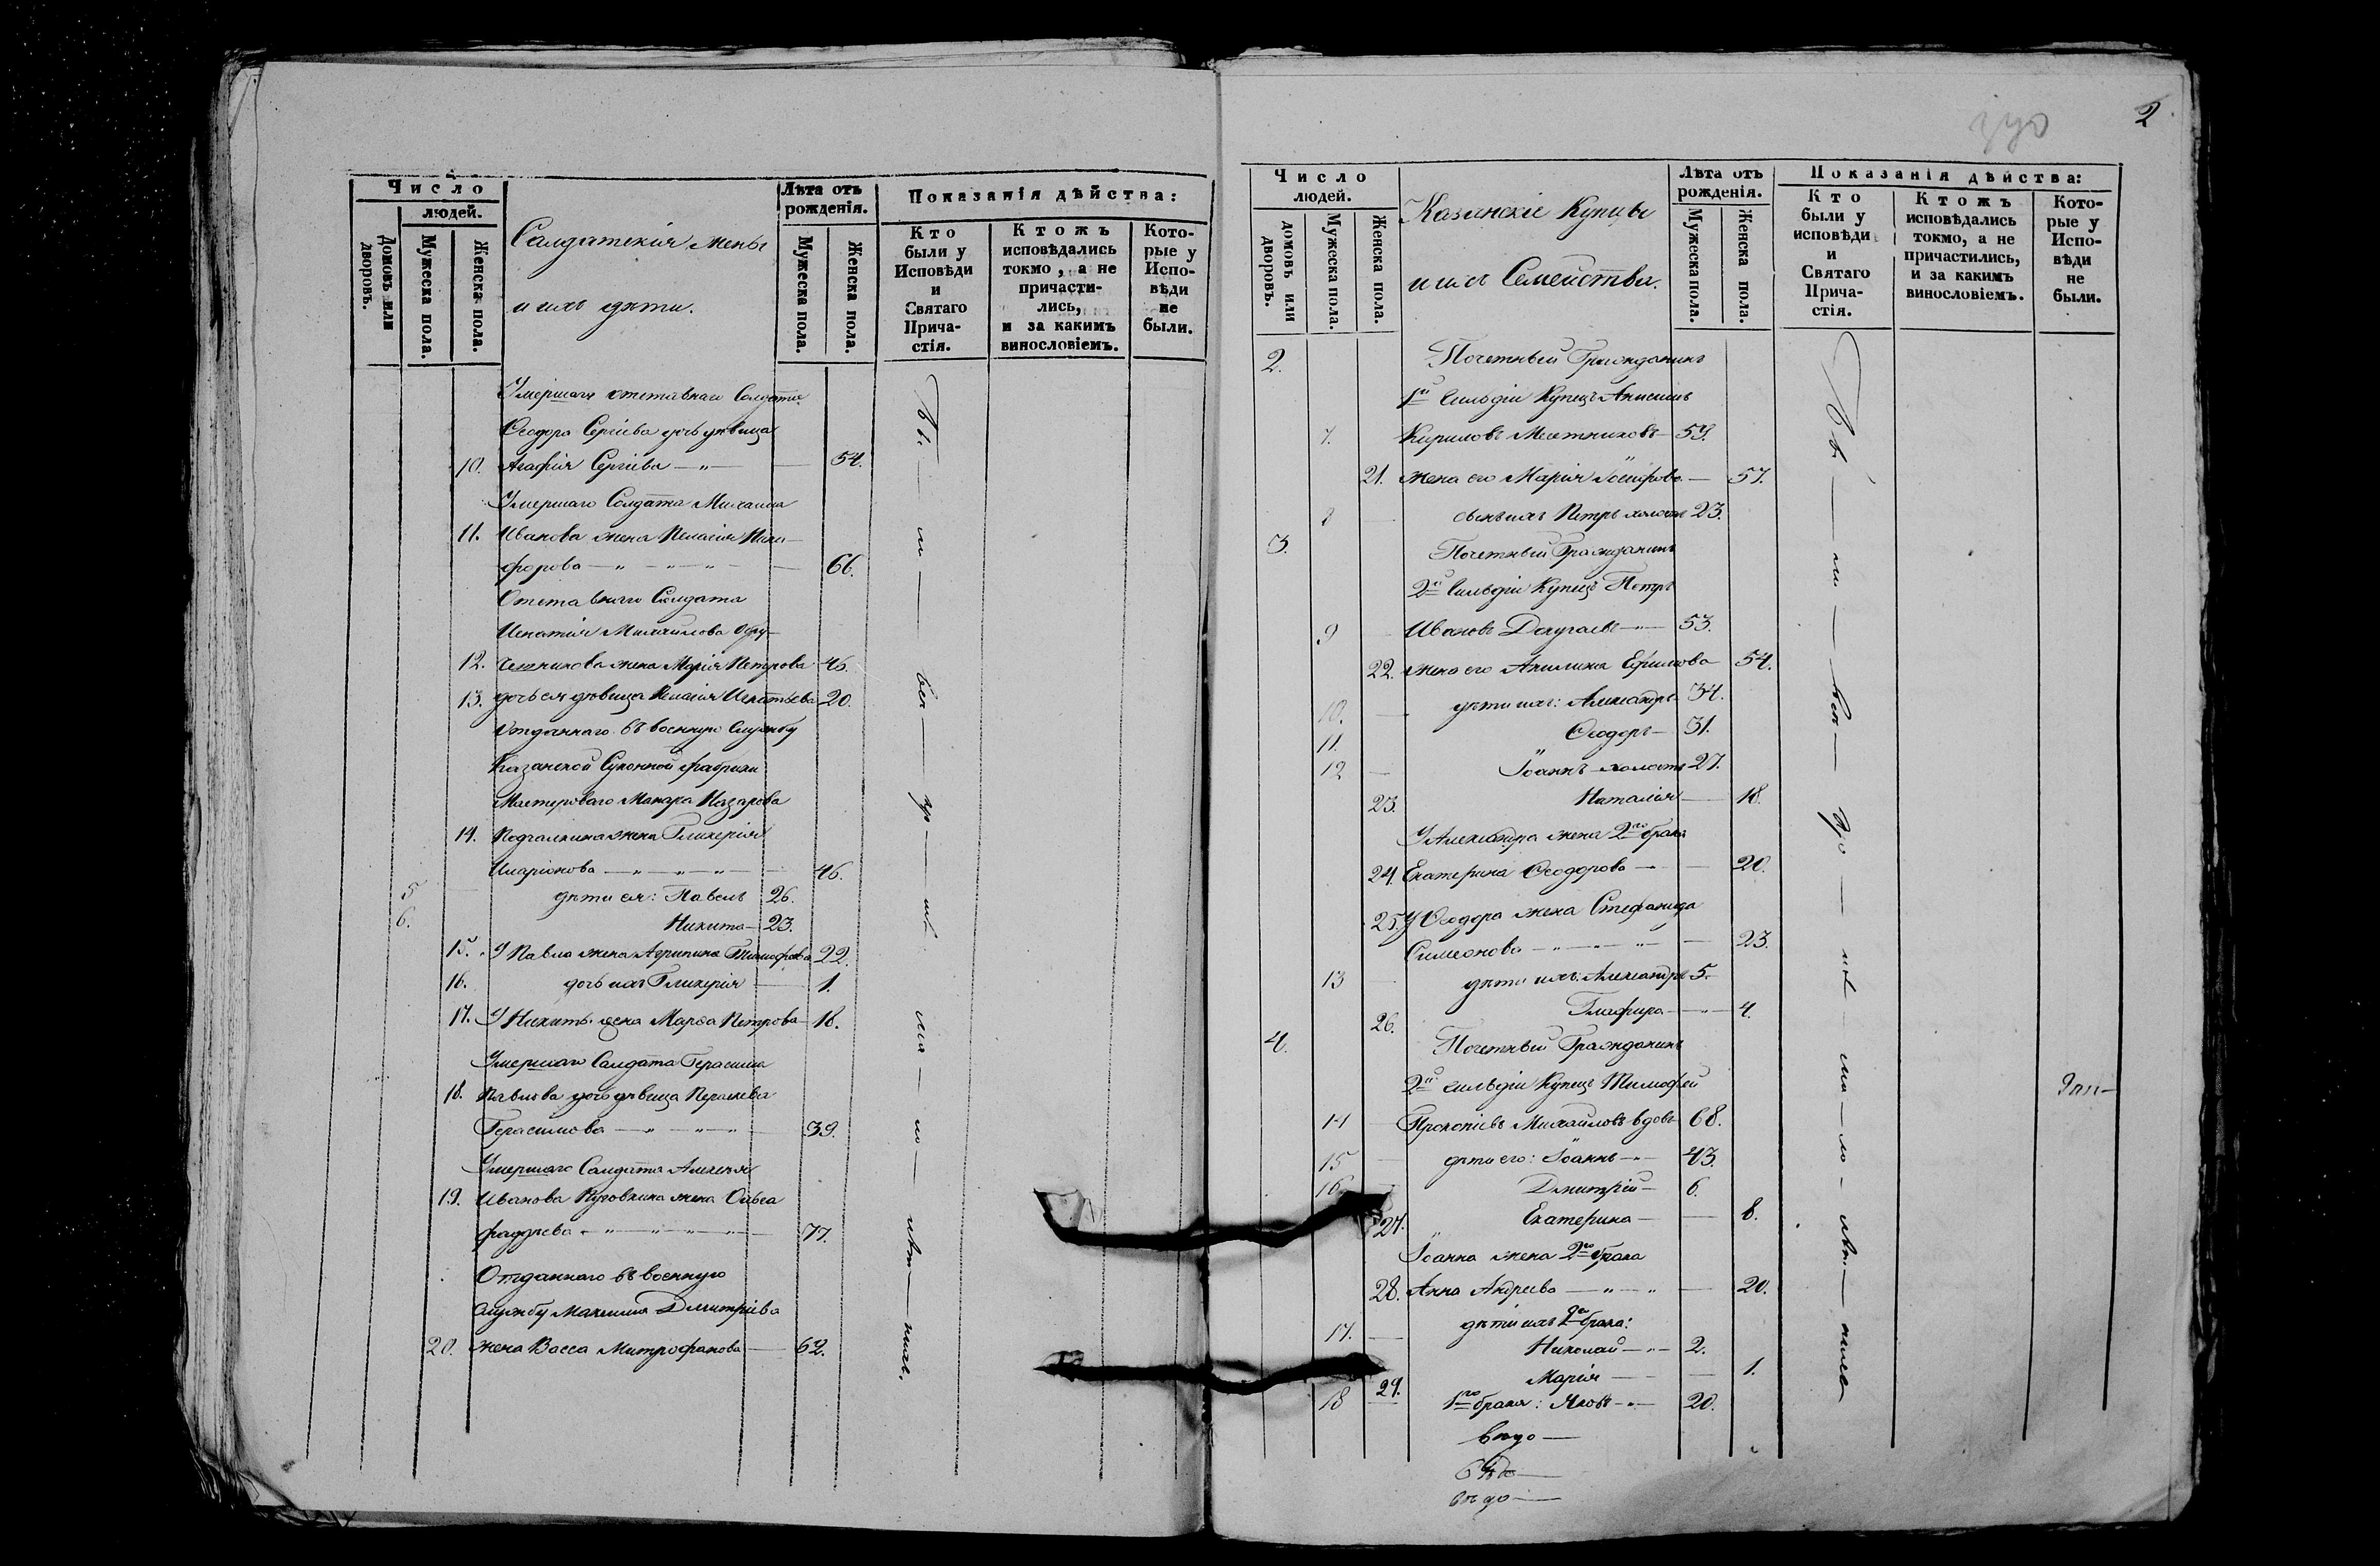 Число
людей.
Домовъ или дворовъ.
Мужеска пола.
Женска пола.
Солдатскія жены
и ихъ дѣти.
Лѣта отъ рожденія.
Мужеска пола.
Женска пола.
Показанія дѣйства:
Кто были у Исповѣди и Святаго Прича-стія.
Ктожъ исповѣдались токмо, а не причасти-лись, и за какимъ винословіемъ.
Кото-рые у Испо-вѣди не были.
Умершаго отставнаго Солдата
Ѳеодора Сергіева дочь дѣвица
10. Агафія Сергіева — 54.
Умершаго Солдата Михаила
11. Иванова жена Пелагія Ники-
форова — 66.
Отставнаго Солдата
Игнатія Михайлова
12. жена Марія Петрова 46.
13. дочь ея дѣвица Пелагія Игнатьева 20.
Отданнаго въ военную службу
Казанской Суконной фабрики
Мастероваго Макара Назарова
14. жена Гликерія
Иларіонова — 46.
5 дѣти ея: Павелъ 26.
6. Никита — 23.
15. У Павла жена Агрипина Тимофеева 22.
16. дочь ихъ Гликерія — 1.
17. У Никиты жена Марѳа Петрова — 18.
Умершаго Солдата Герасима
18. Павлова дочь дѣвица
Герасимова — 39.
Умершаго Солдата Алексѣя
19. Иванова жена Ольга
Фадѣева — 77.
Отданнаго въ военную
службу Максима Дмитріева
20. жена Васса Митрофанова — 62.
2
Число
людей.
домовъ или дворовъ.
Мужеска пола.
Женска пола.
Казанскіе Купцы
и ихъ Семейства.
Лѣта отъ рожденія.
Мужеска пола.
Женска пола.
Показанія дѣйства:
Кто были у исповѣди и Святаго Прича-стія.
Ктожъ исповѣдались токмо, а не причастились, и за какимъ винословіемъ.
Кото-рые у Испо-вѣди не были.
2. Почетный Гражданинъ
1й Гильдіи Купецъ Анисимъ
7. Кириловъ Месетниковъ — 59.
21. жена его Марія Іосифова — 57.
8 сынъ ихъ Петръ холостъ 23.
3. Почетный Гражданинъ
2й Гильдіи Купецъ Петръ
9 Ивановъ Докучаевъ — 53.
22. жена его Акилина Ефимова 54.
10. дѣти ихъ: Александръ 34.
11 Ѳеодоръ — 31.
12 Іоаннъ холостъ 27.
23. Наталія — 18.
У Александра жена 2го брака
24. Екатерина Ѳеодорова — 20.
25. У Ѳеодора жена Стефанида
Симеонова — 23.
13 дѣти ихъ: Александръ 5.
26. Глафира — 4.
4. Почетный Гражданинъ
2й гильдіи Купецъ Тимофей
14 Прокопіевъ Михайловъ вдовъ 68.
15 дѣти его: Іоаннъ — 43.
16 Дмитрій — 6.
27. Екатерина — 8.
Іоанна жена 2го брака
28. Анна Андреева — 20.
дѣти ихъ 2го брака:
17. Николай — 2.
29. Марія — 1.
18 1го брака: Яковъ — 20.